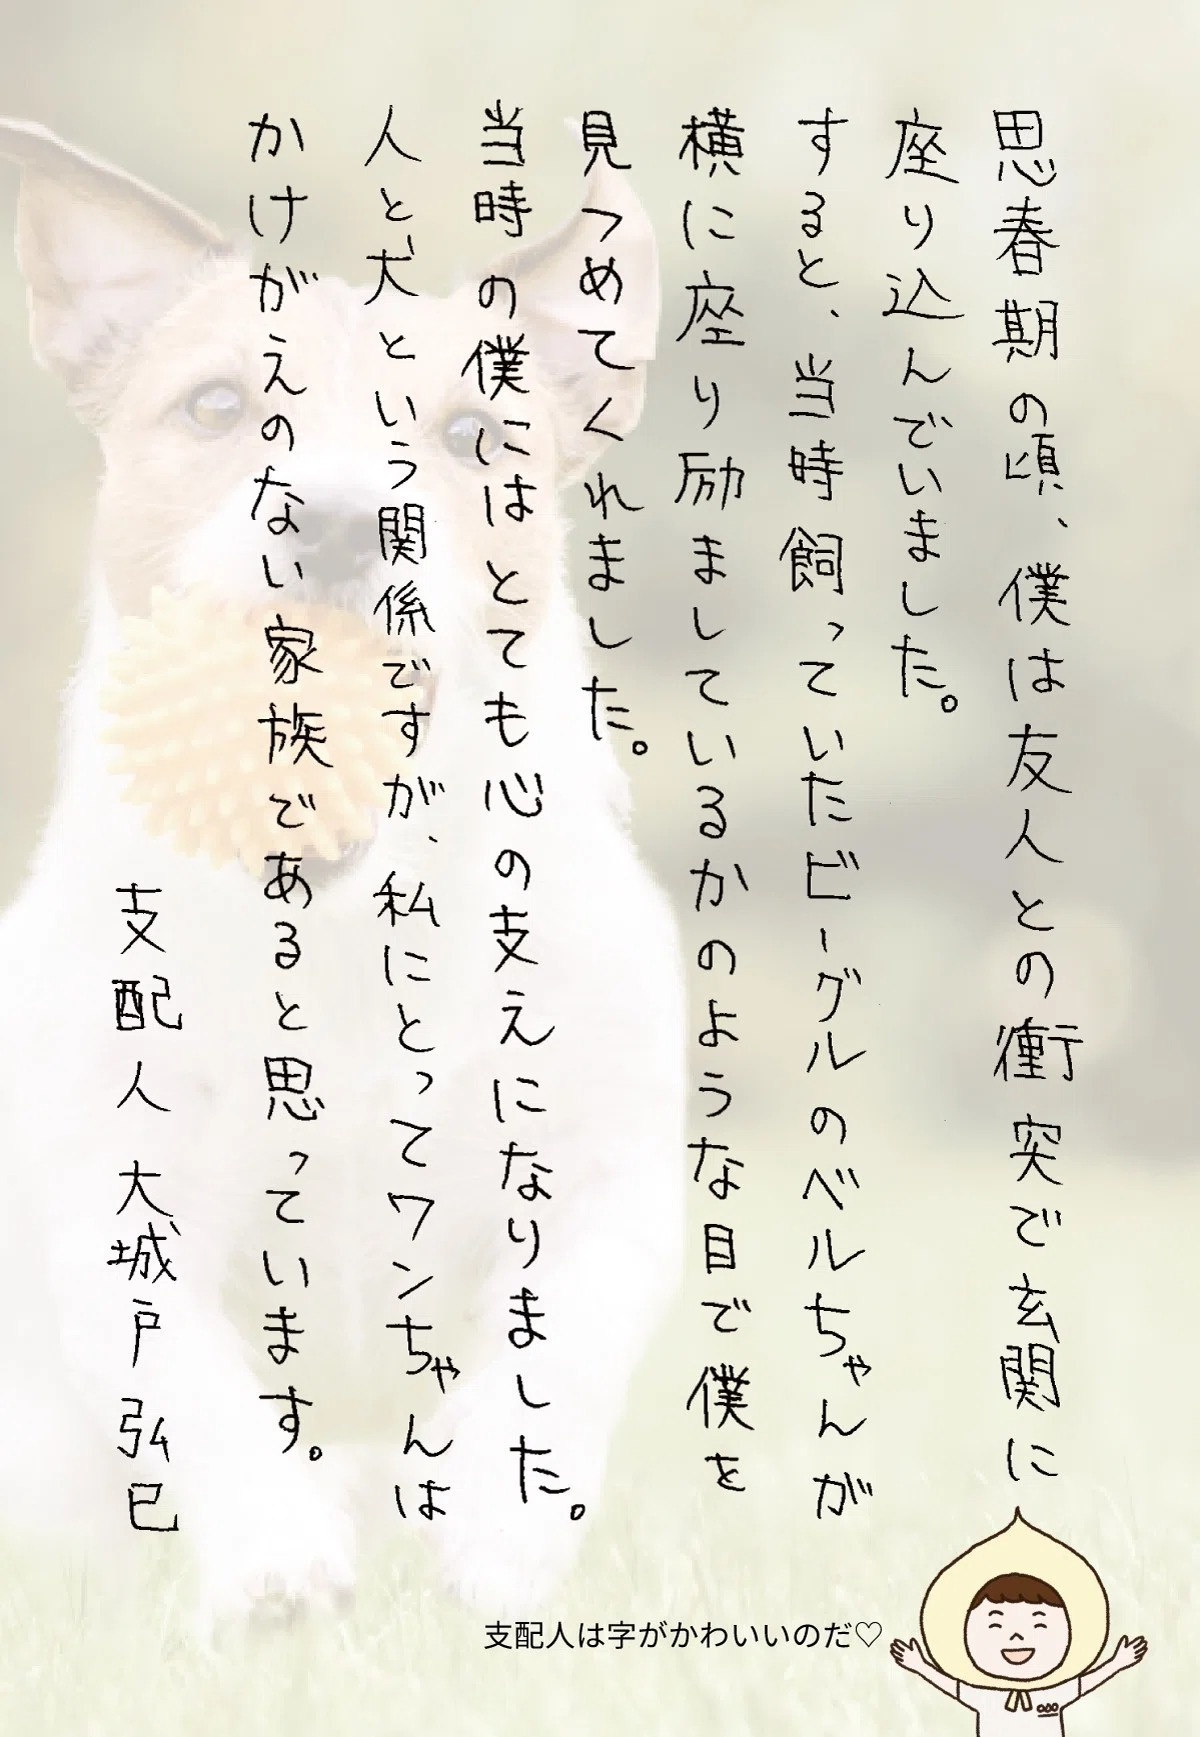 思春期の頃、僕は友人との衝突で玄関に
座り込んでいました。
すると、当時飼っていたビーグルのベルちゃんが
横に座り励ましているかのような目で僕を
見つめてくれました。
当時の僕にはとても心の支えになりました。
人と犬という関係ですが、私にとってワンちゃんは
かけがえのない家族であると思っています。
支配人 大城戸弘巳
支配人は字がかわいいのだ♡